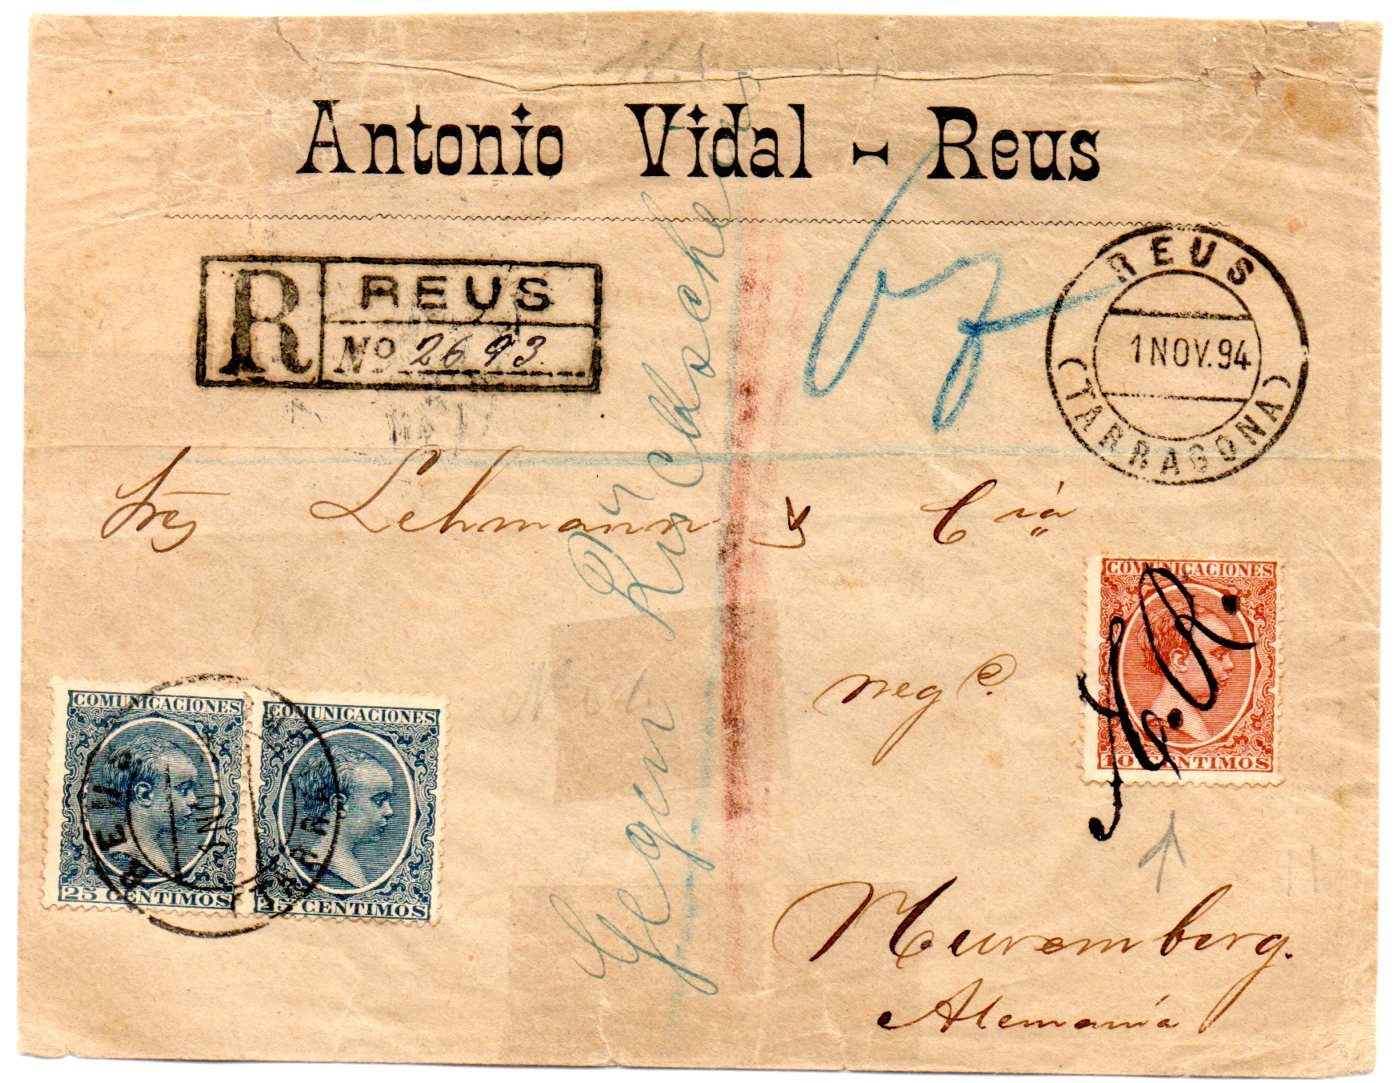 Antonio Vidal - Reus
R REUS
No 2693
REUS
1 NOV. 94
(TARRAGONA)
Sres Lehmann & Cía
neg e.
Nuremberg.
Alemanía
Gegen Rückschein
COMUNICACIONES
A.R.
10 CENTIMOS
COMUNICACIONES
25 CENTIMOS
COMUNICACIONES
25 CENTIMOS
REUS